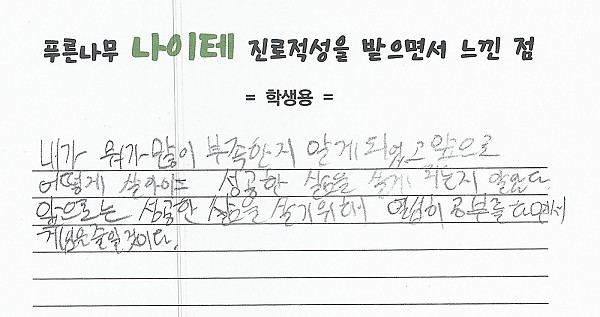 푸른나무 나이테 진로적성을 받으면서 느낀 점
= 학생용 =
내가 뭐가 많이 부족한지 알게 되었고 앞으로
어떻게 살아야 성공한 삶을 살게 되는지 알았다.
앞으로는 성공한 삶을 살기위해 열심히 공부를 하면서
게임을 줄일 것이다.